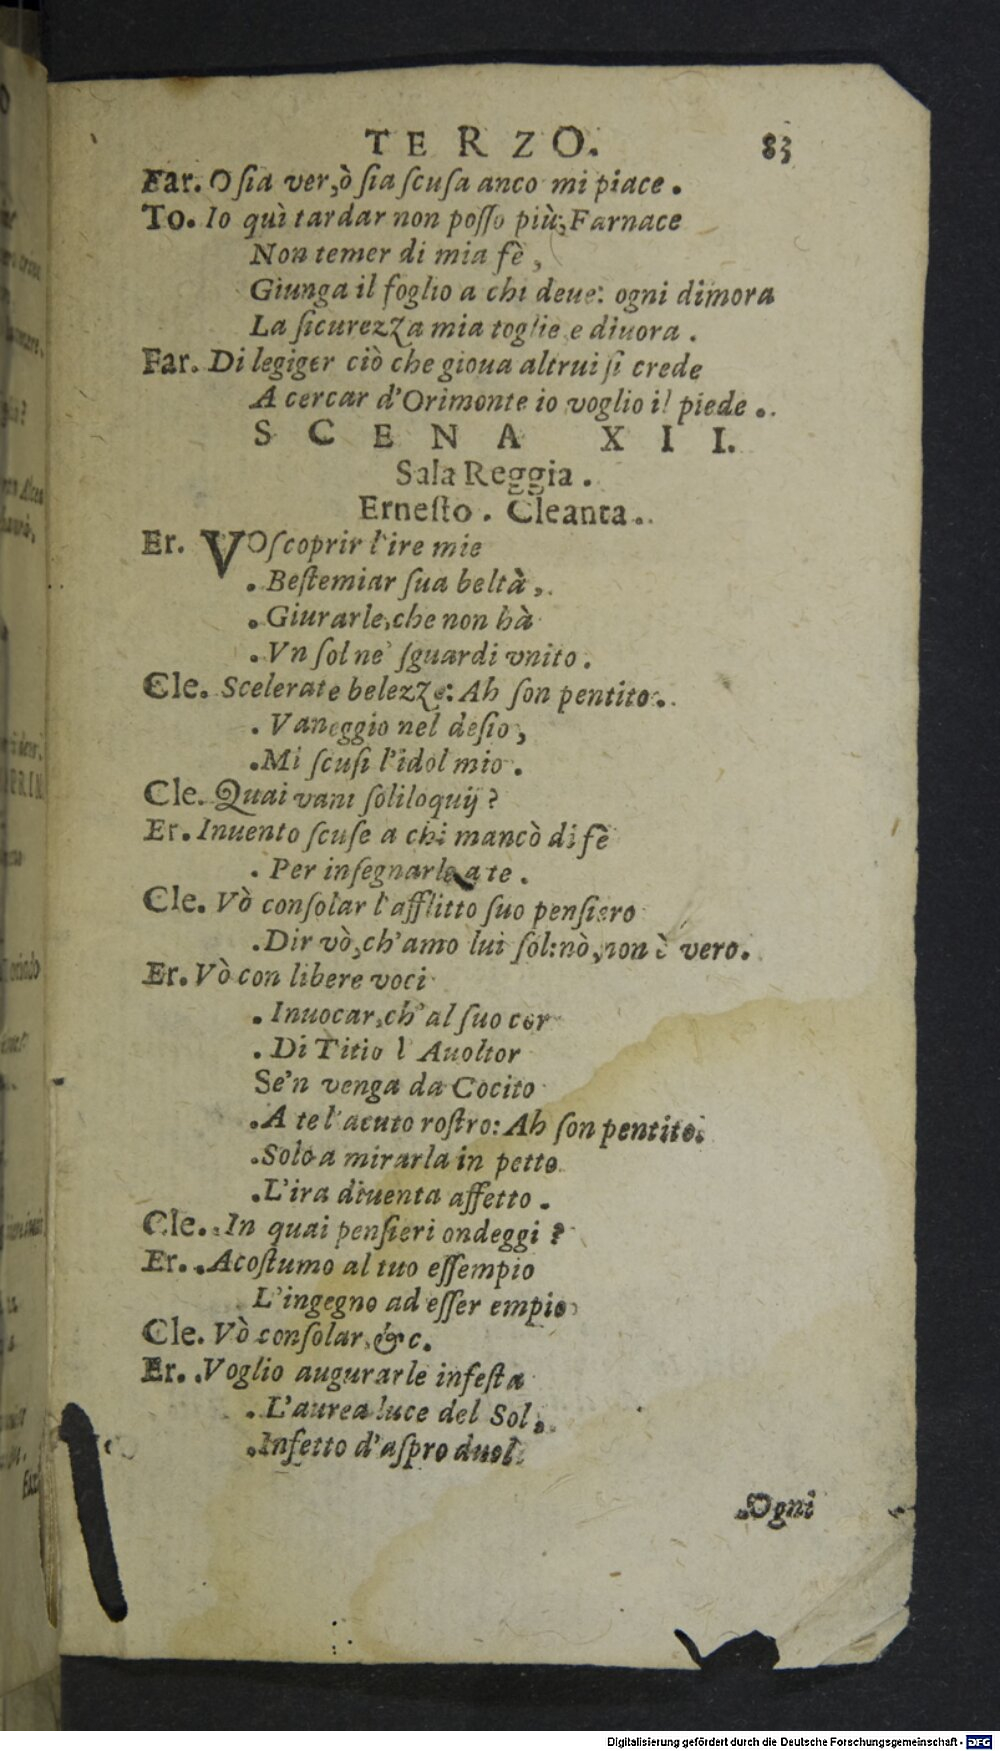 TERZO. 83
Far. O sia ver, ò sia scusa anco mi piace.
To. Io quì tardar non posso più, Farnace
Non temer di mia fè,
Giunga il foglio a chi deue: ogni dimora
La sicurezza mia toglie e diuora.
Far. Di legiger ciò che gioua altrui si crede
A cercar d'Orimonte io voglio il piede.
SCENA XII.
Sala Reggia.
Ernesto. Cleanta.
Er. VO scoprir l'ire mie
Bestemiar sua beltà,
Giurarle, che non hà
Vn sol ne' sguardi vnito.
Cle. Scelerate belezze: Ah son pentito.
Vaneggio nel desio,
Mi scusi l'idol mio.
Cle. Quai vani soliloquij?
Er. Inuento scuse a chi mancò di fè
Per insegnarle a te.
Cle. Vò consolar l'afflitto suo pensiero
Dir vò, ch'amo lui sol: nò, non è vero.
Er. Vò con libere voci
Inuocar, ch'al suo cor
Di Titio l Auoltor
Se'n venga da Cocito
A te l'acuto rostro: Ah son pentito.
Solo a mirarla in petto
L'ira diuenta affetto.
Cle. In quai pensieri ondeggi?
Er. Acostumo al tuo essempio
L'ingegno ad esser empio
Cle. Vò consolar, &c.
Er. Voglio augurarle infesta
L'aurea luce del Sol,
Infetto d'aspro duol
Ogni
Digitalisierung gefördert durch die Deutsche Forschungsgemeinschaft - DFG